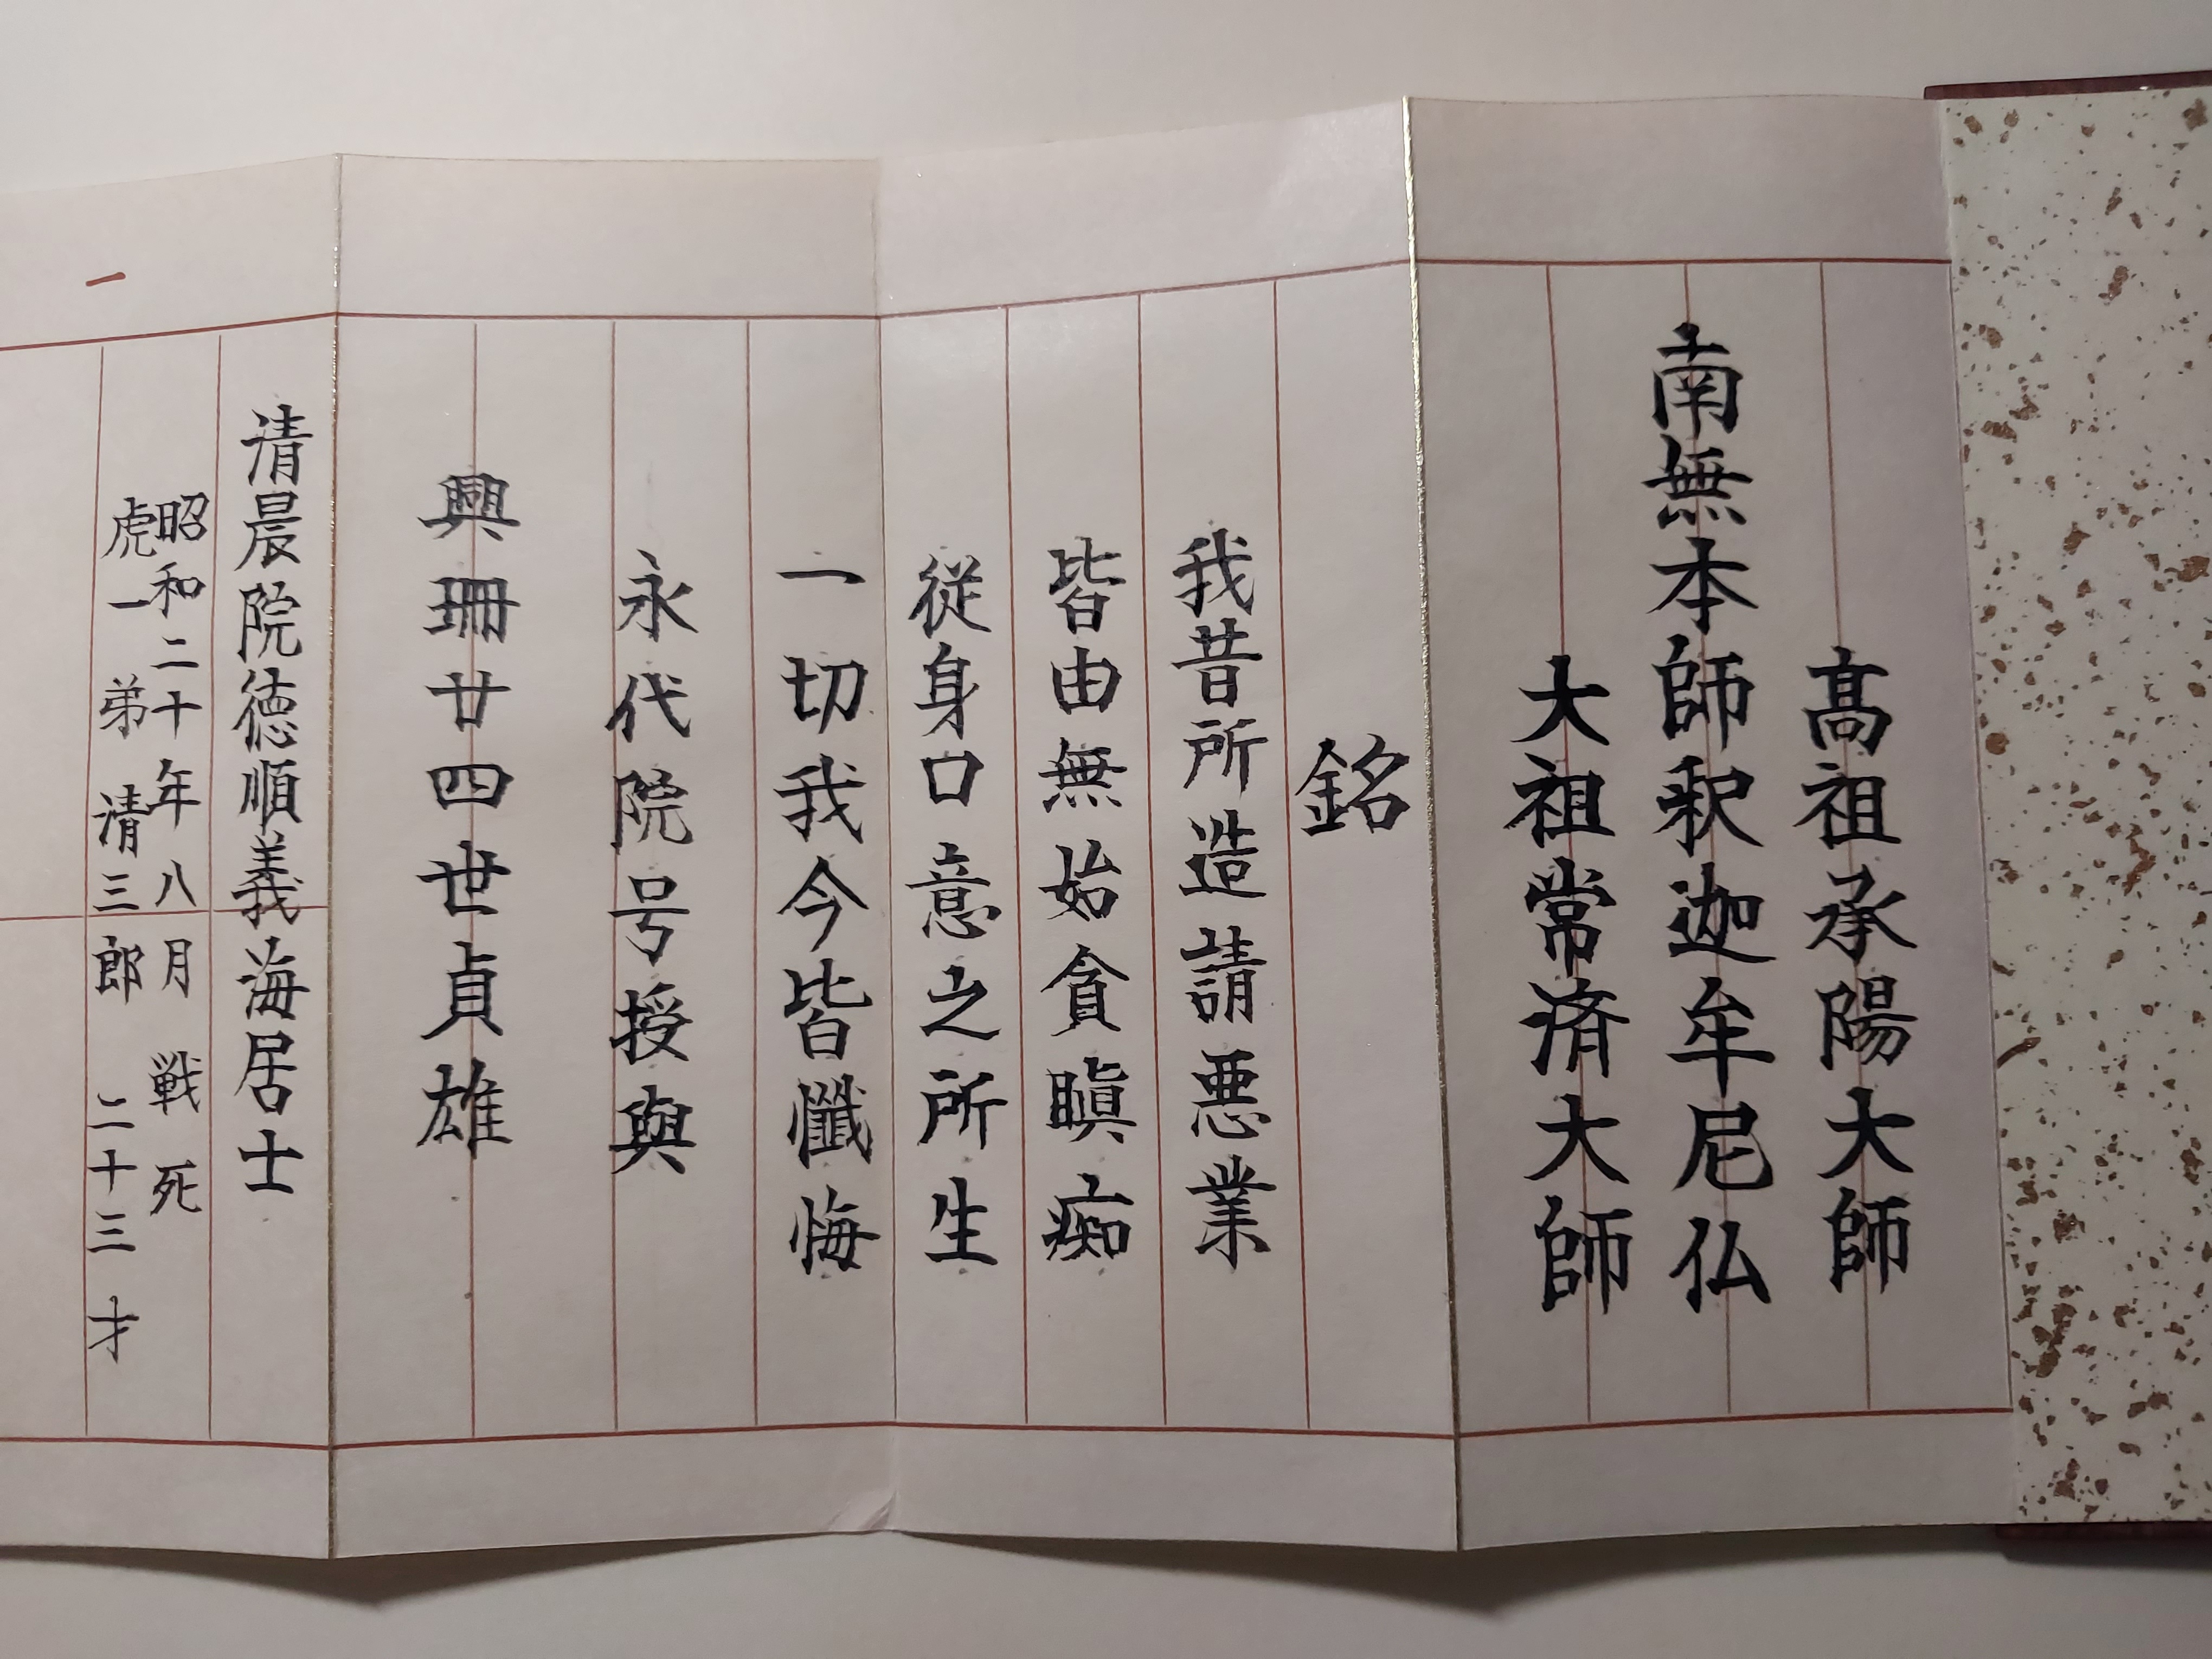 高祖承陽大師
南無本師釈迦牟尼仏
大祖常済大師
銘
我昔所造請悪業
皆由無始貪瞋痴
従身口意之所生
一切我今皆懺悔
永代院号授與
興珊廿四世貞雄
一
清晨院徳順義海居士
昭和二十年八月 戦死
虎一 弟 清三郎 二十三才